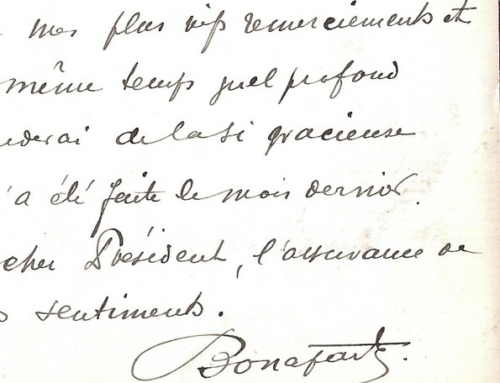 mes plus vifs remerciements et
même temps quel profond
derai de la si gracieuse
'a été faite le mois dernier.
cher Président, l'assurance de
s sentiments.